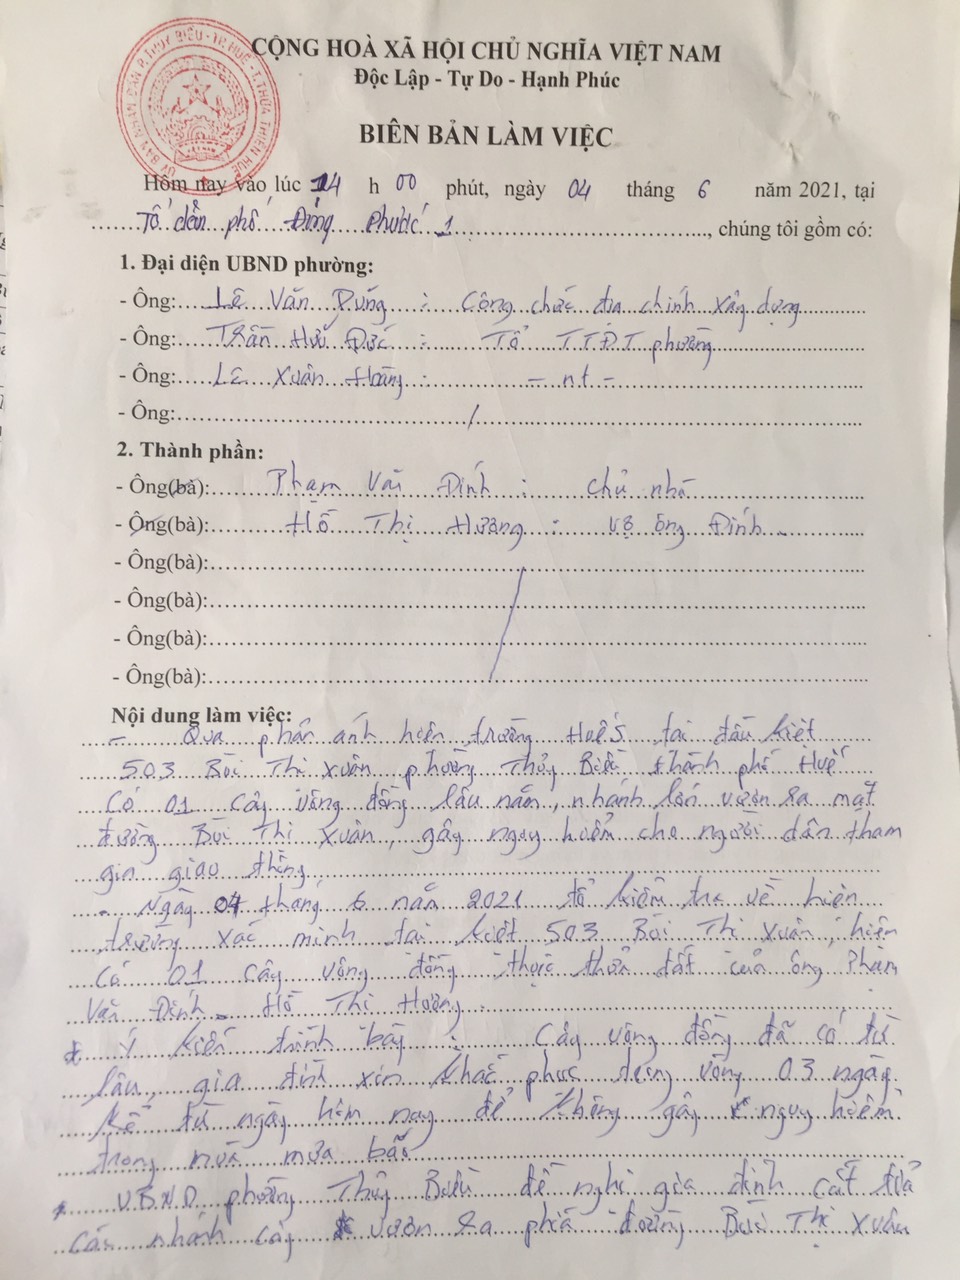 ỦY BAN NHÂN DÂN P. THỦY BIỀU - TP. HUẾ - T. THỪA THIÊN HUẾ
CỘNG HOÀ XÃ HỘI CHỦ NGHĨA VIỆT NAM
Độc Lập - Tự Do - Hạnh Phúc
BIÊN BẢN LÀM VIỆC
Hôm nay vào lúc 14 h 00 phút, ngày 04 tháng 6 năm 2021, tại
Tổ dân phố Đông Phước 1, chúng tôi gồm có:
1. Đại diện UBND phường:
- Ông: Lê Văn Dũng : Công chức địa chính xây dựng
- Ông: Trần Hữu Đức : Tổ TTĐT phường
- Ông: Lê Xuân Hoàng : - nt -
- Ông: /
2. Thành phần:
- Ông(bà): Phạm Văn Đính : chủ nhà
- Ông(bà): Hồ Thị Hương : vợ ông Đính
- Ông(bà):
- Ông(bà):
- Ông(bà):
- Ông(bà):
Nội dung làm việc:
- Qua phản ánh hiện trường Huế S tại đầu kiệt
503 Bùi Thị Xuân phường Thủy Biều thành phố Huế
Có 01 cây vông đồng lâu năm, nhánh lớn vươn ra mặt
đường Bùi Thị Xuân, gây nguy hiểm cho người dân tham
gia giao thông
- Ngày 04 tháng 6 năm 2021 tổ kiểm tra về hiện
trường xác minh tại kiệt 503 Bùi Thị Xuân, hiện
có 01 cây vông đồng thuộc thửa đất của ông Phạm
Văn Đính - Hồ Thị Hương
* Ý kiến trình bày : Cây vông đồng đã có từ
lâu, gia đình xin khắc phục trong vòng 03 ngày
kể từ ngày hôm nay để không gây nguy hiểm
trong mùa mưa bão
* UBND phường Thủy Biều đề nghị gia đình cắt tỉa
các nhánh cây vươn ra phía đường Bùi Thị Xuân